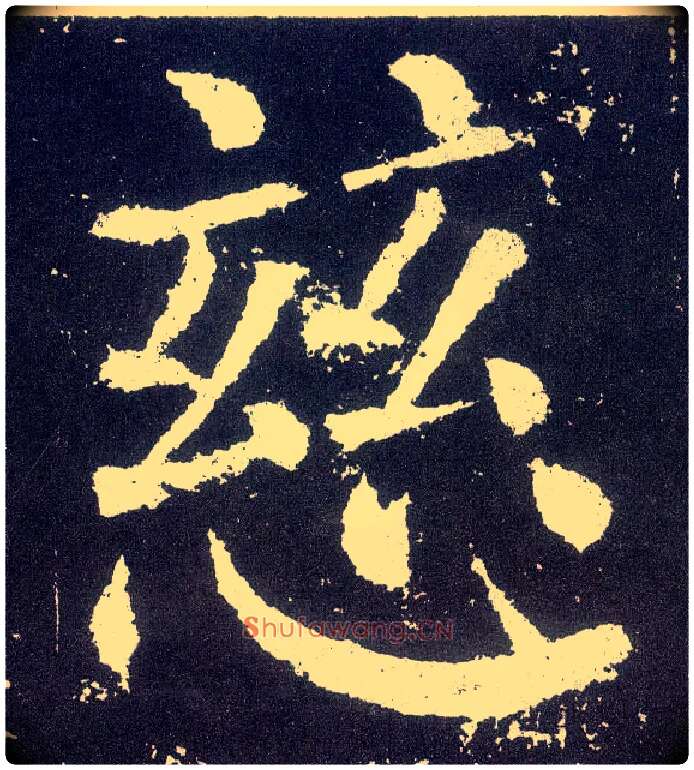 慈
Shufawang.CN